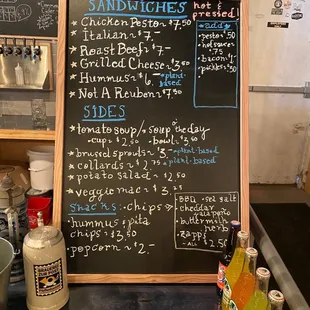 SANDWICHES
Chicken Pesto ~ $7.50
Italian ~ $7-
Roast Beef ~ $7-
Grilled Cheese ~ $3.50
Hummus ~ $6- ~plant-based
Not A Reuben ~ $7.50
hot & pressed!
add
pesto $.50
hot sauce $.75
bacon $1-
pickles $.50
SIDES
tomato soup/soup of the day
cup ~ $2.50 bowl ~ $3.50
brussel sprouts ~ 3- ~plant-based
collards ~ $2.75 ~plant-based
potato salad ~ $2.50
veggie mac ~ $3.25
Snacks: chips
BBQ sea salt
cheddar
jalapeño
buttermilk
ranch
zapps
ALL $2.50
hummus & pita
chips ~ $3.50
popcorn ~ $2-